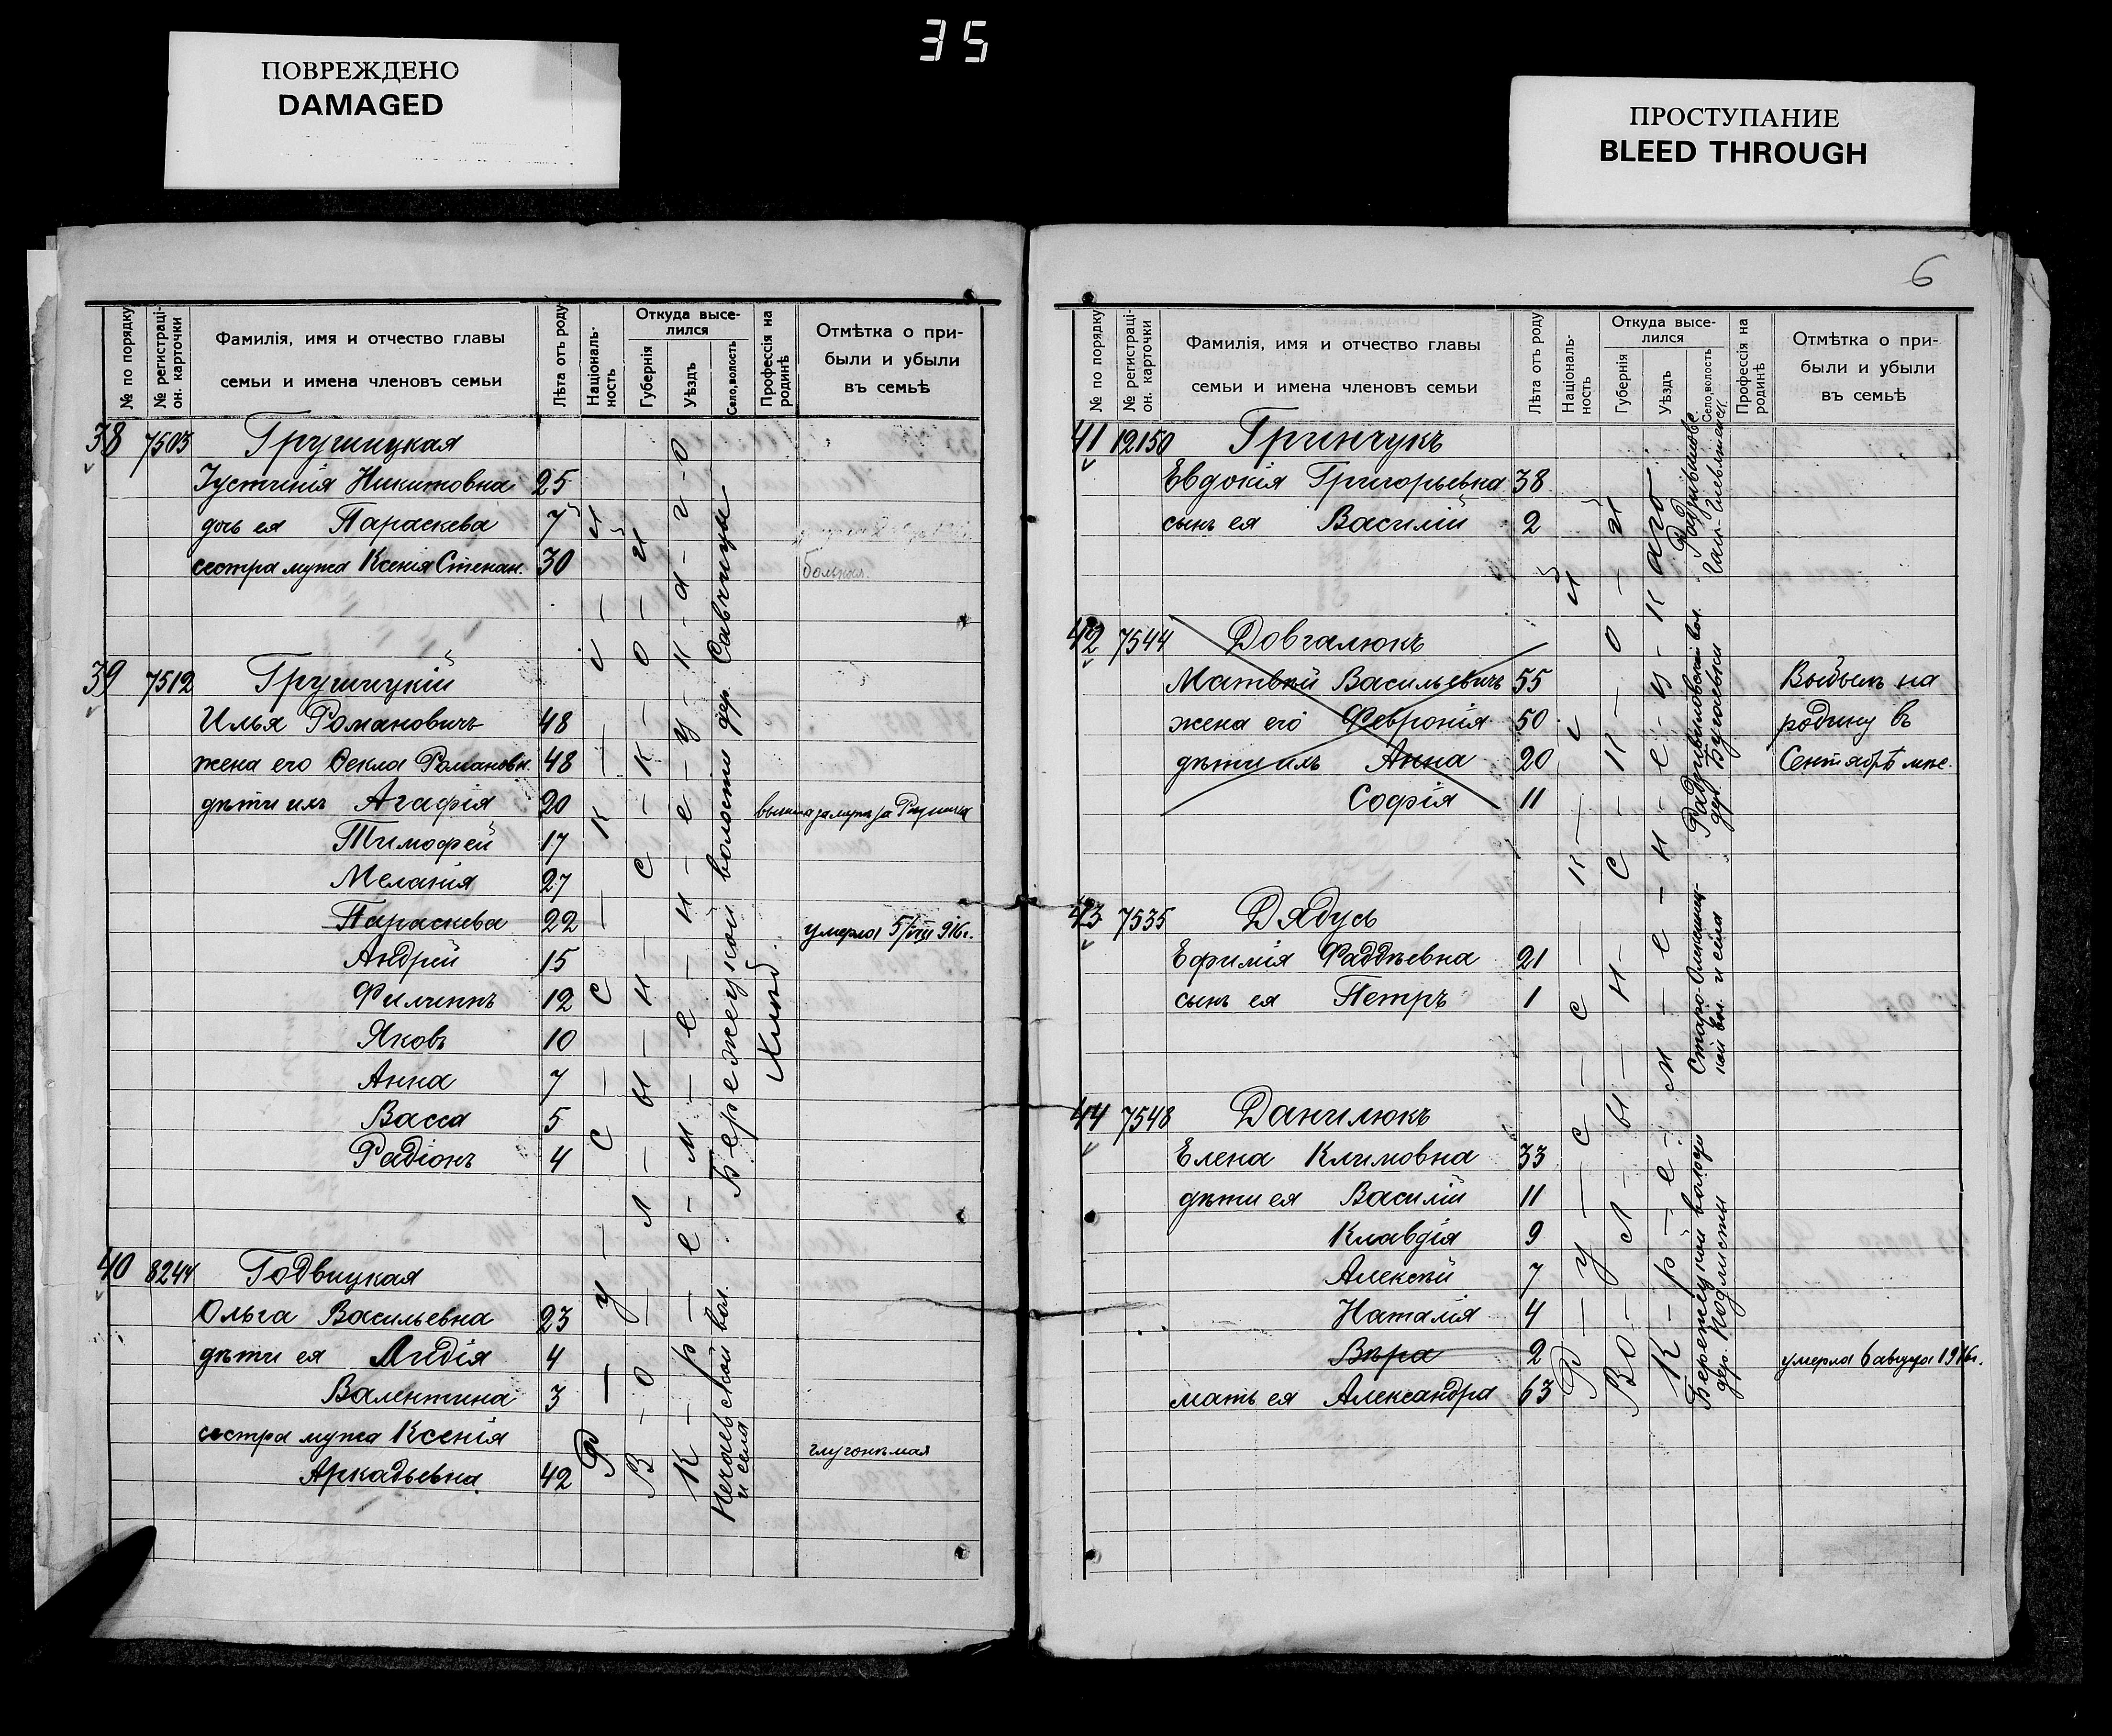 35
ПОВРЕЖДЕНО
DAMAGED
ПРОСТУПАНИЕ
BLEED THROUGH
№ по порядку
№ регистраці-
он. карточки
Фамилія, имя и отчество главы
семьи и имена членовъ семьи
Лѣта отъ роду
Національ-
ность
Откуда высе-
лился
Губернія
Уѣздъ
Село, волость
Профессія на
родинѣ
Отмѣтка о при-
были и убыли
въ семьѣ
38 7503 Грушицкая
Іустинія Никитовна 25
дочь ея Параскева 7
сестра мужа Ксенія Степан. 30 больная.
39 7512 Грушицкій
Илья Романовичъ 48
жена его Ѳекла Романовн. 48
дѣти ихъ Агафія 20 вышла замужъ за
Тимофей 17
Меланія 27
Параскева 22 умерла 5/VIII 916г.
Андрей 15
Филиппъ 12
Яковъ 10
Анна 7
Васса 5
Радіонъ 4
40 8244 Годвицкая
Ольга Васильевна 23
дѣти ея Лидія 4
Валентина 3
сестра мужа Ксенія глухонѣмая
Аркадьевна. 42
Р-у-с-с-к-і-й
В-о-л-ы-н-с-к-о-й
К-р-е-м-е-н-е-ц-к-а-г-о
Бережецкой волости дер. Савчицы
вол.
и села
6
№ по порядку
№ регистраці-
он. карточки
Фамилія, имя и отчество главы
семьи и имена членовъ семьи
Лѣта отъ роду
Національ-
ность
Откуда высе-
лился
Губернія
Уѣздъ
Село, волость
Профессія на
родинѣ
Отмѣтка о при-
были и убыли
въ семьѣ
41 12150 Гринчукъ
Евдокія Григорьевна 38
сынъ ея Василій 2
42 7544 Довгалюкъ
Матвѣй Васильевичъ 55 Выбылъ на
жена его Февронія 50 родину въ
дѣти ихъ Анна 20 Сентябрѣ мѣс.
Софія 11
43 7535 Дядусь
Ефимія Фаддѣевна 21
сынъ ея Петръ 1
44 7548 Данилюкъ
Елена Климовна 33
дѣти ея Василій 11
Клавдія 9
Алексѣй 7
Наталія 4
Вѣра 2 умерла 6 августа 1916г.
мать ея Александра 63
Р-у-с-с-к-і-й
Во-л-ы-н-с-к-о-й
К-р-е-м-е-н-е-ц-каго
Радзивиловской вол.
дер. Бугаевки
Старо-
кой вол. и села
Бережецкой волости
дер. Подлисцы